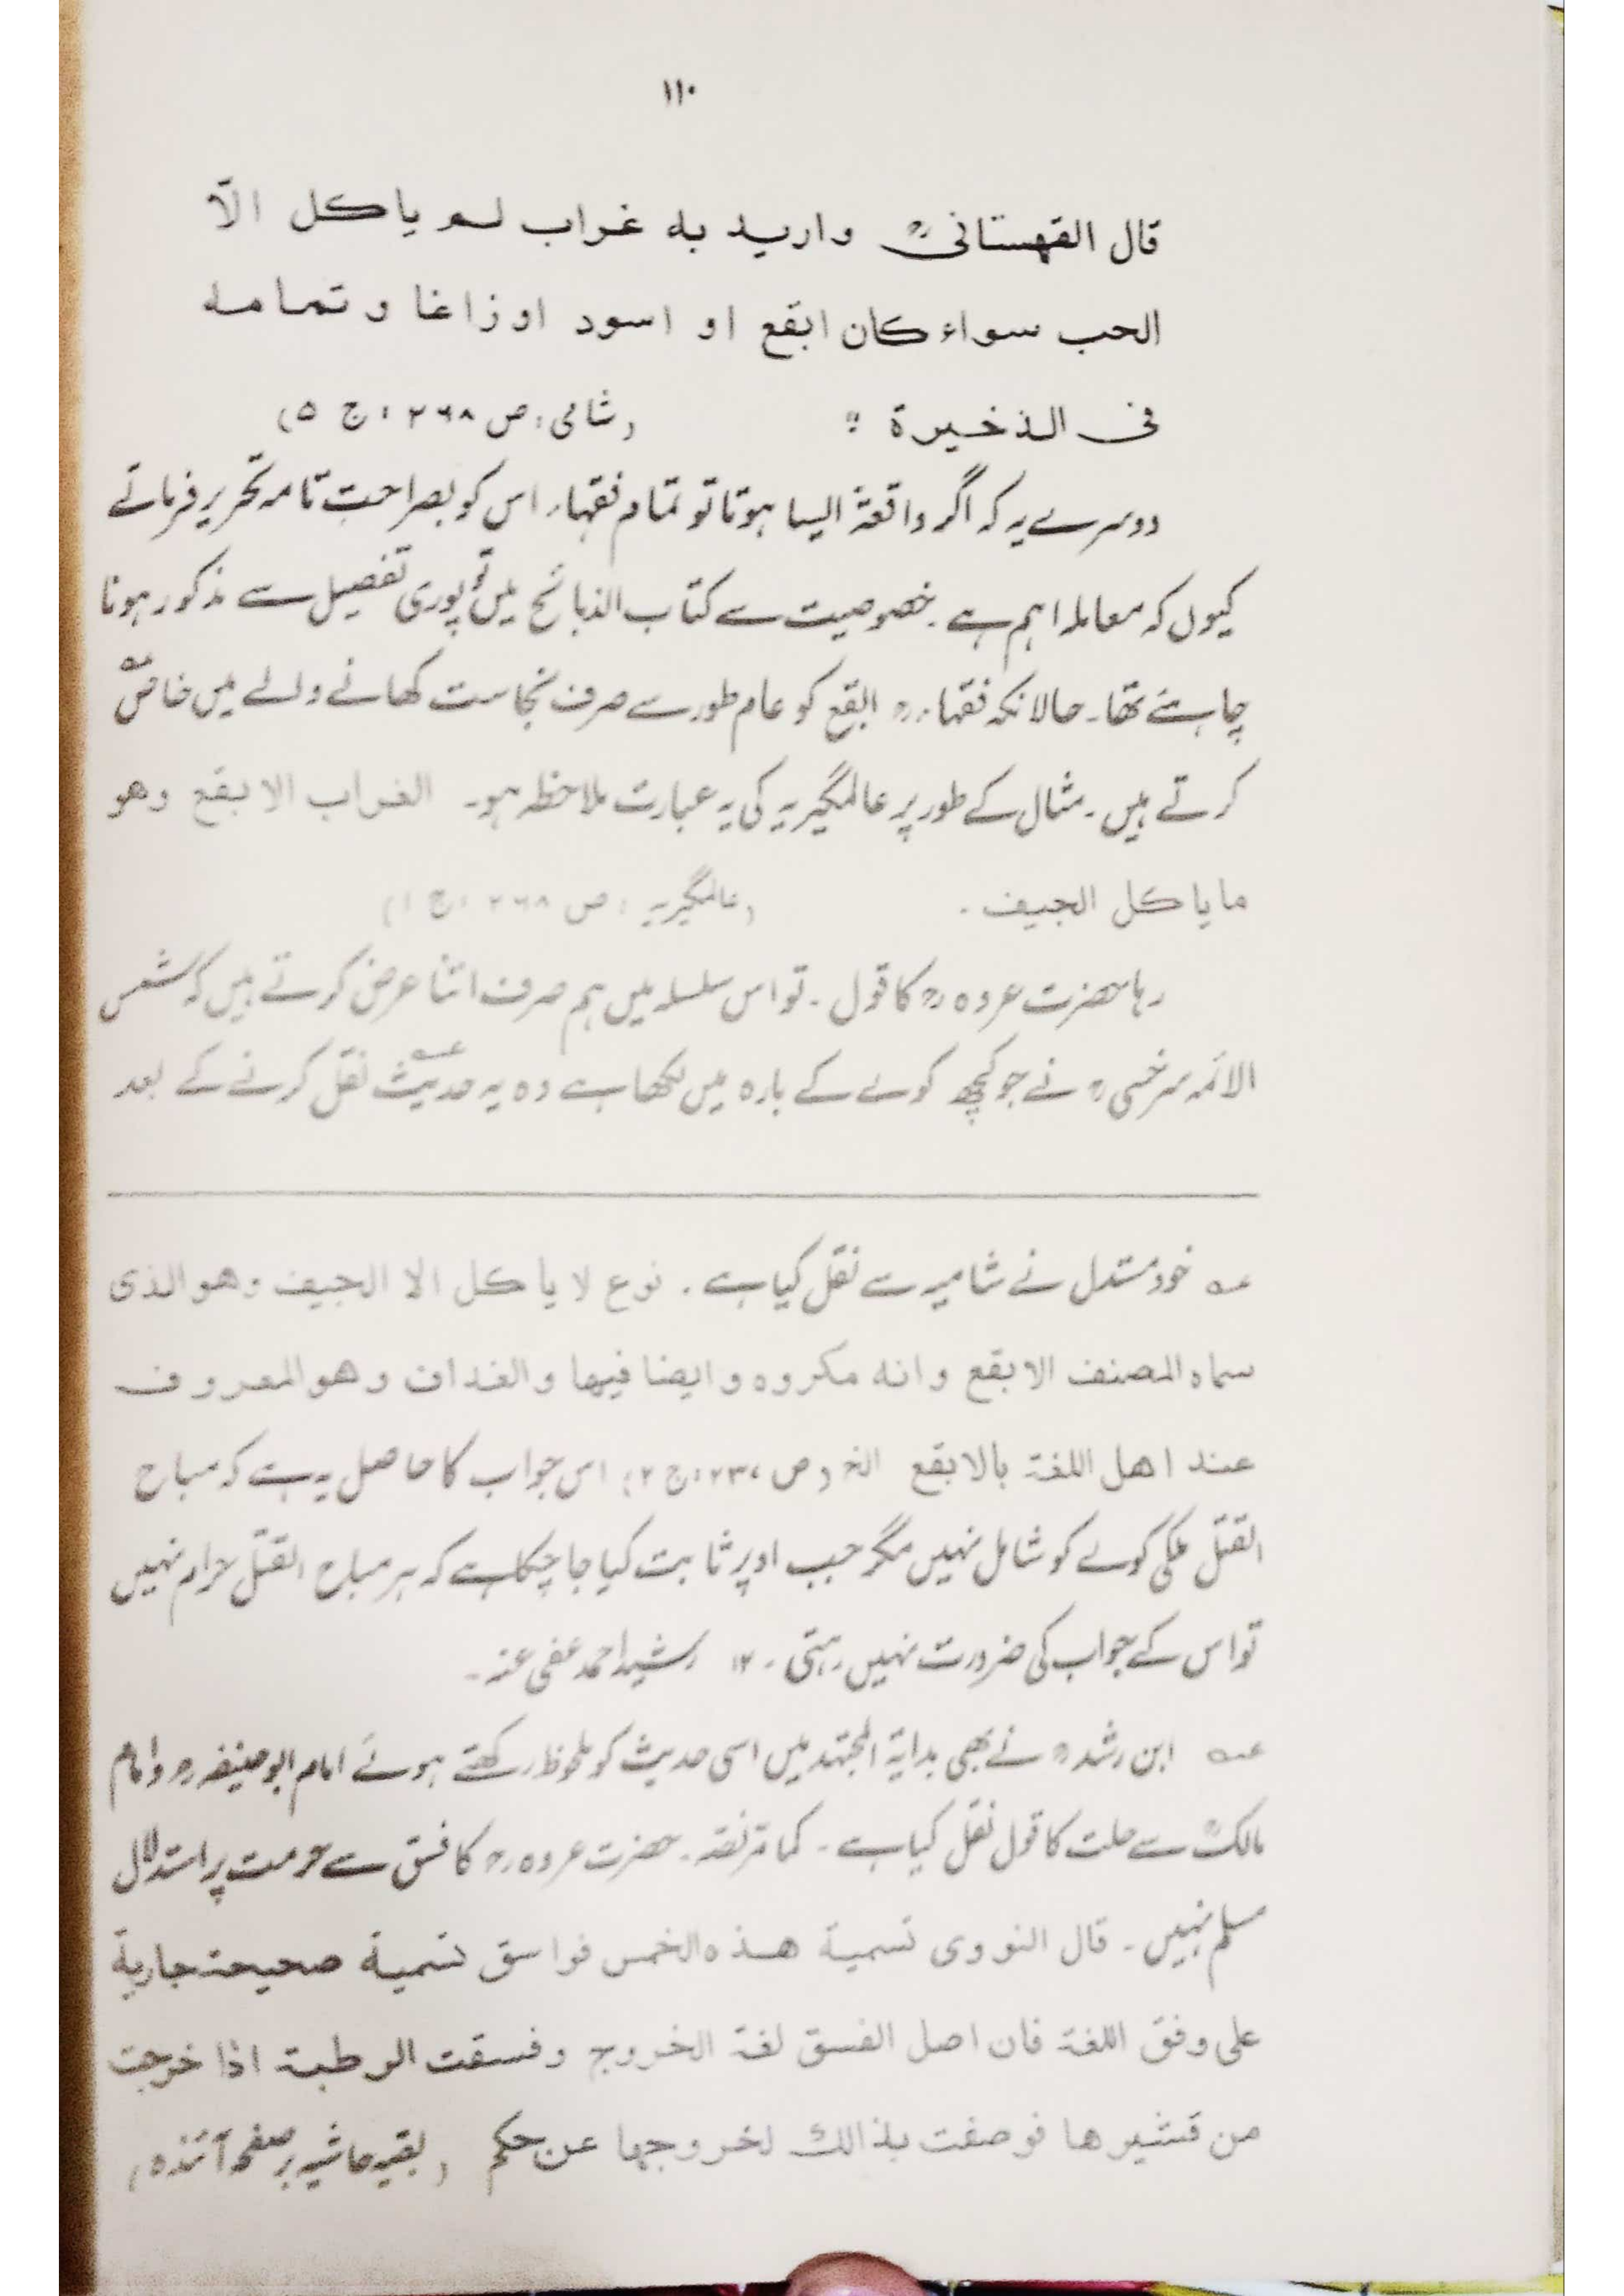 ۱۱۰
قال القهستانیؒ و ارید به غراب لم یاکل الّا
الحب سواء کان ابقع او اسود او زاغا و تمامه
فی الذخیرة : (شامی: ص ۲۶۸، ج ۵)
دوسرے یہ کہ اگر واقعۃً ایسا ہوتا تو تمام فقہاء اس کو بصراحت تامہ تحریر فرماتے
کیوں کہ معاملہ اہم ہے۔ خصوصیت سے کتاب الذبائح میں تو پوری تفصیل سے مذکور ہونا
چاہئے تھا۔ حالانکہ فقہاءؒ ابقع کو عام طور سے صرف نجاست کھانے والے میں خاص عــہ
کرتے ہیں۔ مثال کے طور پر عالمگیریہ کی یہ عبارت ملاحظہ ہو۔ الغراب الابقع وهو
ما یاکل الجیف۔ (عالمگیریہ: ص ۲۶۸، ج ۱)
رہا حضرت عروہؒ کا قول۔ تو اس سلسلہ میں ہم صرف اتنا عرض کرتے ہیں کہ شمس
الائمہ سرخسیؒ نے جو کچھ کوے کے بارہ میں لکھا ہے وہ یہ حدیث عــہ نقل کرنے کے بعد
عــہ خود مستدل نے شامیہ سے نقل کیا ہے۔ نوع لا یاکل الا الجیف وهو الذی
سماہ المصنف الابقع وانه مکروه وایضا فیها والغداف وهو المعروف
عند اهل اللغة بالابقع الخ (ص ۲۳۷، ج ۲) اس جواب کا حاصل یہ ہے کہ مباح
القتل ملکی کوے کو شامل نہیں مگر جب اوپر ثابت کیا جا چکا ہے کہ ہر مباح القتل حرام نہیں
تو اس کے جواب کی ضرورت نہیں رہتی۔ ۱۲ رشید احمد عفی عنہ۔
عــہ ابن رشدؒ نے بھی بدایۃ المجتہد میں اسی حدیث کو ملحوظ رکھتے ہوئے امام ابو حنیفہؒ و امام
مالکؒ سے حلت کا قول نقل کیا ہے۔ کما مر نصہ۔ حضرت عروہؒ کا فسق سے حرمت پر استدلال
مسلم نہیں۔ قال النووی تسمیة هذه الخمس فواسق تسمیة صحیحة جاریة
علی وفق اللغة فان اصل الفسق لغة الخروج وفسقت الرطبة اذا خرجت
من قشیرها فوصفت بذالك لخروجها عن حکم (بقیہ حاشیہ بر صفحہ آئندہ)